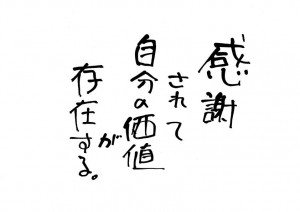 感謝
されて
自分の価値
が
存在する。